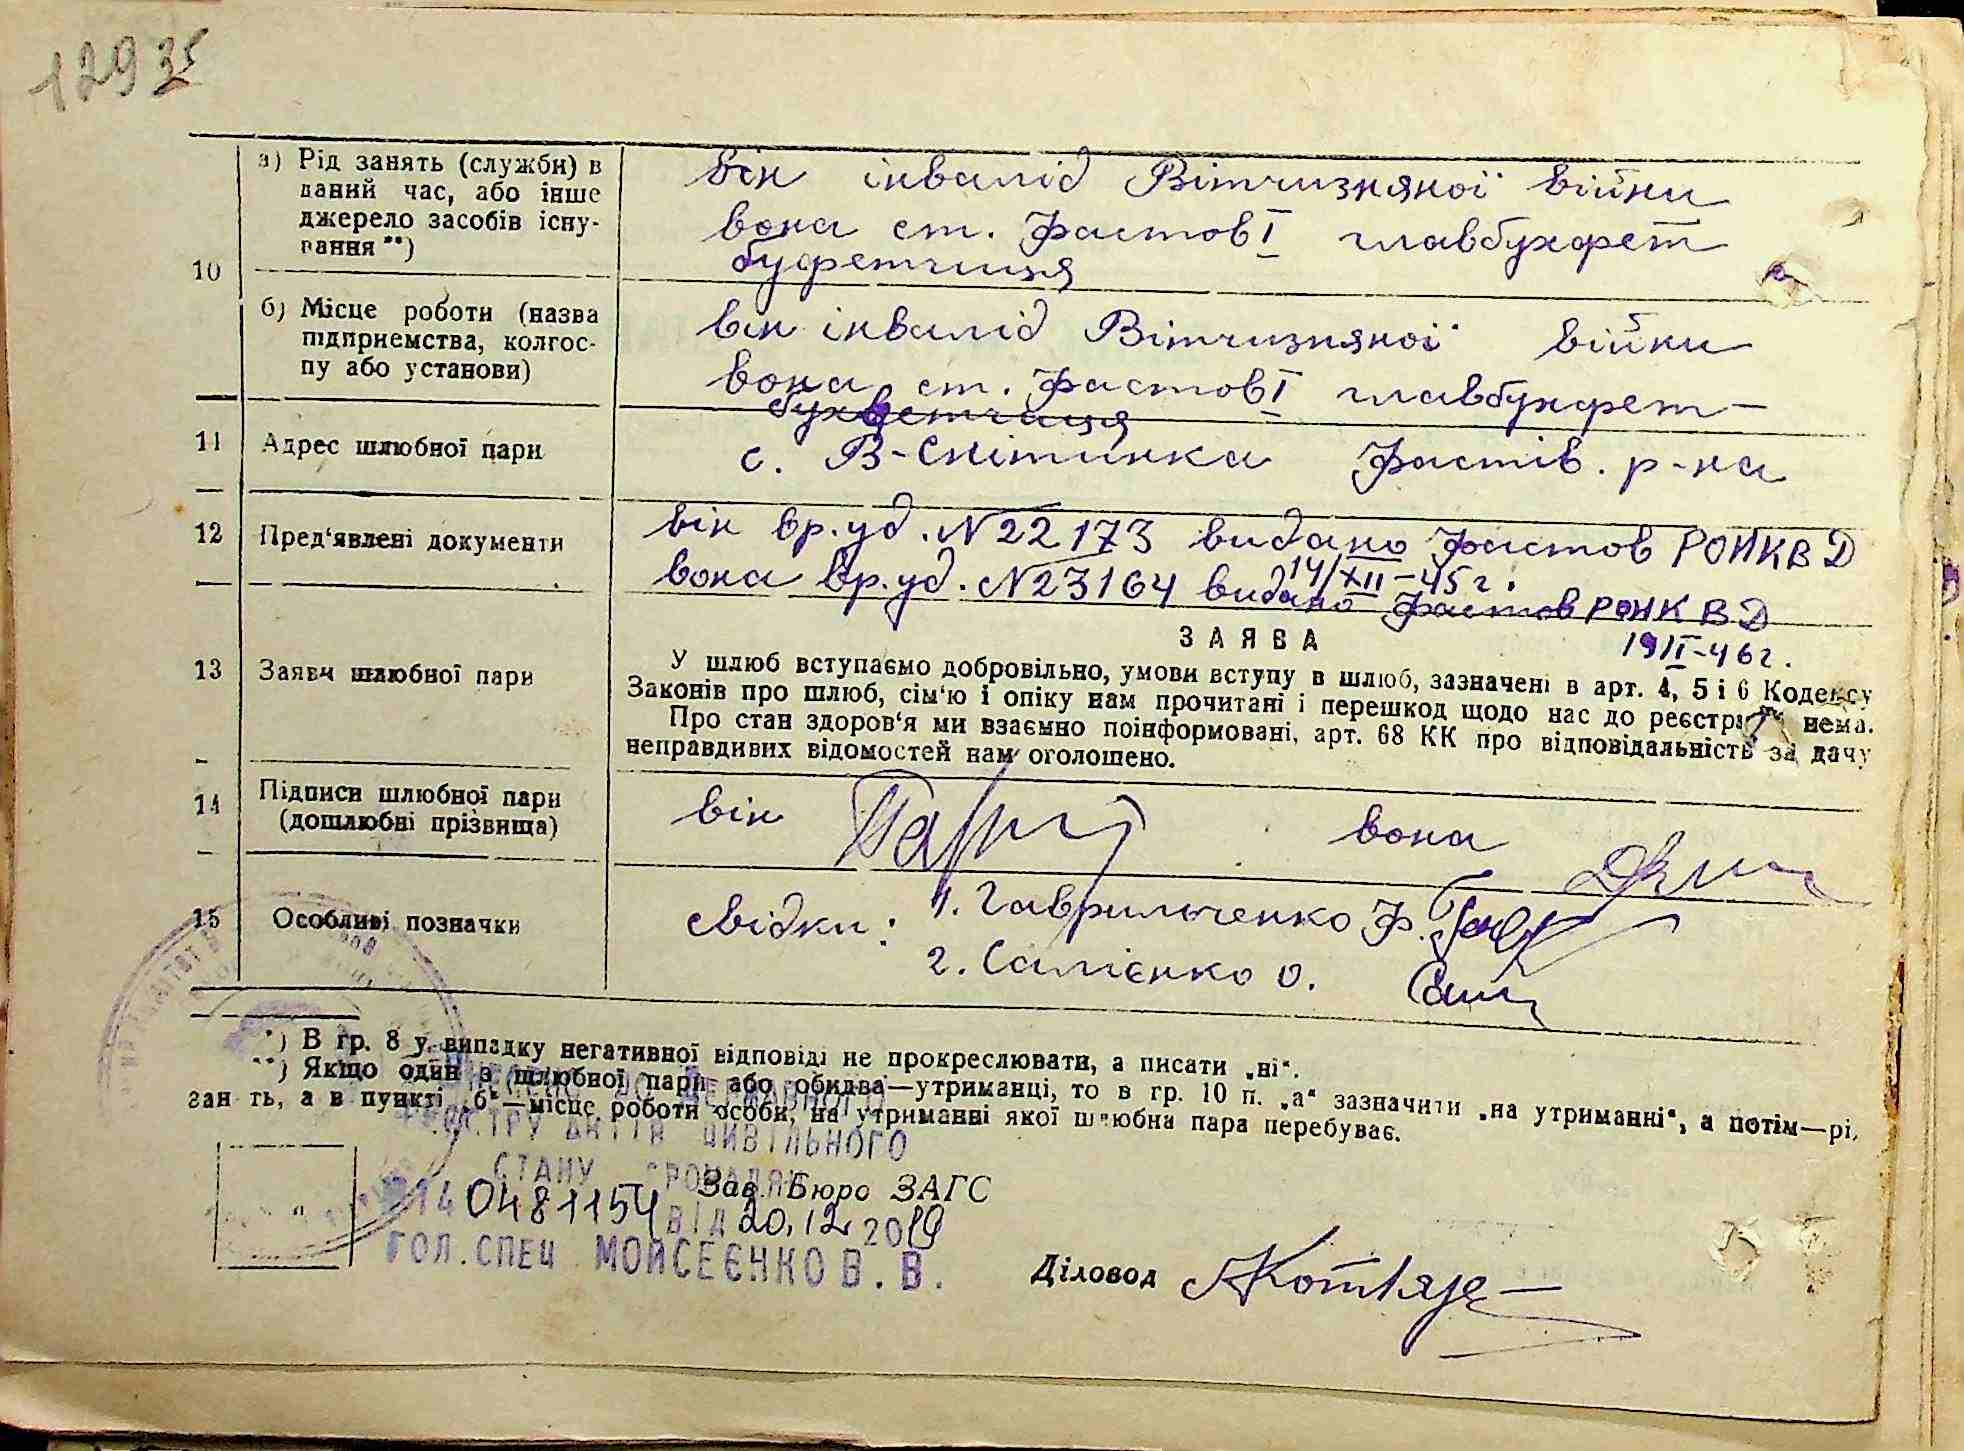 12935
10
а) Рід занять (служби) в
даний час, або інше
джерело засобів існу-
вання**)
він інвалід Вітчизняної війни
вона ст. Фастов I главбухфет
буфетчиця
б) Місце роботи (назва
підприємства, колгос-
пу або установи)
він інвалід Вітчизняної війни
вона ст. Фастов I главбухфет-
11
Адрес шлюбної пари
с. В-Снітинка Фастів. р-на
12
Пред'явлені документи
він вр. уд. N 22173 видано Фастов РОНКВД
14/XII-45 г.
вона вр. уд. N 23164 видано Фастов РОНКВД
19 II-46 г.
13
Заяви шлюбної пари
ЗАЯВА
У шлюб вступаємо добровільно, умови вступу в шлюб, зазначені в арт. 4, 5 і 6 Кодексу
Законів про шлюб, сім'ю і опіку нам прочитані і перешкод щодо нас до реєстрації нема.
Про стан здоров'я ми взаємно поінформовані, арт. 68 КК про відповідальність за дачу
неправдивих відомостей нам оголошено.
14
Підписи шлюбної пари
(дошлюбні прізвища)
він вона
15
Особливі позначки
свідки: 1. Гаврильченко Ф.
2. Салієнко О.
*) В гр. 8 у випадку негативної відповіді не прокреслювати, а писати „ні".
**) Якщо один з шлюбної пари або обидва—утриманці, то в гр. 10 п. „а" зазначити „на утриманні", а потім—рід
занять, а в пункті „б"—місце роботи особи, на утриманні якої шлюбна пара перебуває.
ДЕРЖАВНОГО
РЕЄСТРУ АКТІВ ЦИВІЛЬНОГО
СТАНУ ГРОМАДЯН
Зав. Бюро ЗАГС
0481154 ВІД 20.12 2019
ГОЛ. СПЕЦ МОЙСЕЄНКО В. В.
Діловод